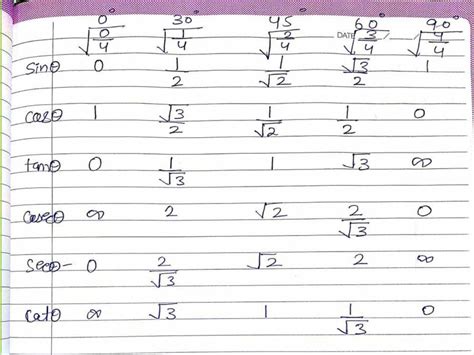 0° 30° 45° 60° 90°
√0/4 √1/4 √2/4 DATE √3/4 √4/4
Sinθ 0 1/2 1/√2 √3/2 1
Casθ 1 √3/2 1/√2 1/2 0
tanθ 0 1/√3 1 √3 ∞
Casecθ ∞ 2 √2 2/√3 0
Secθ- 0 2/√3 √2 2 ∞
Catθ ∞ √3 1 1/√3 0